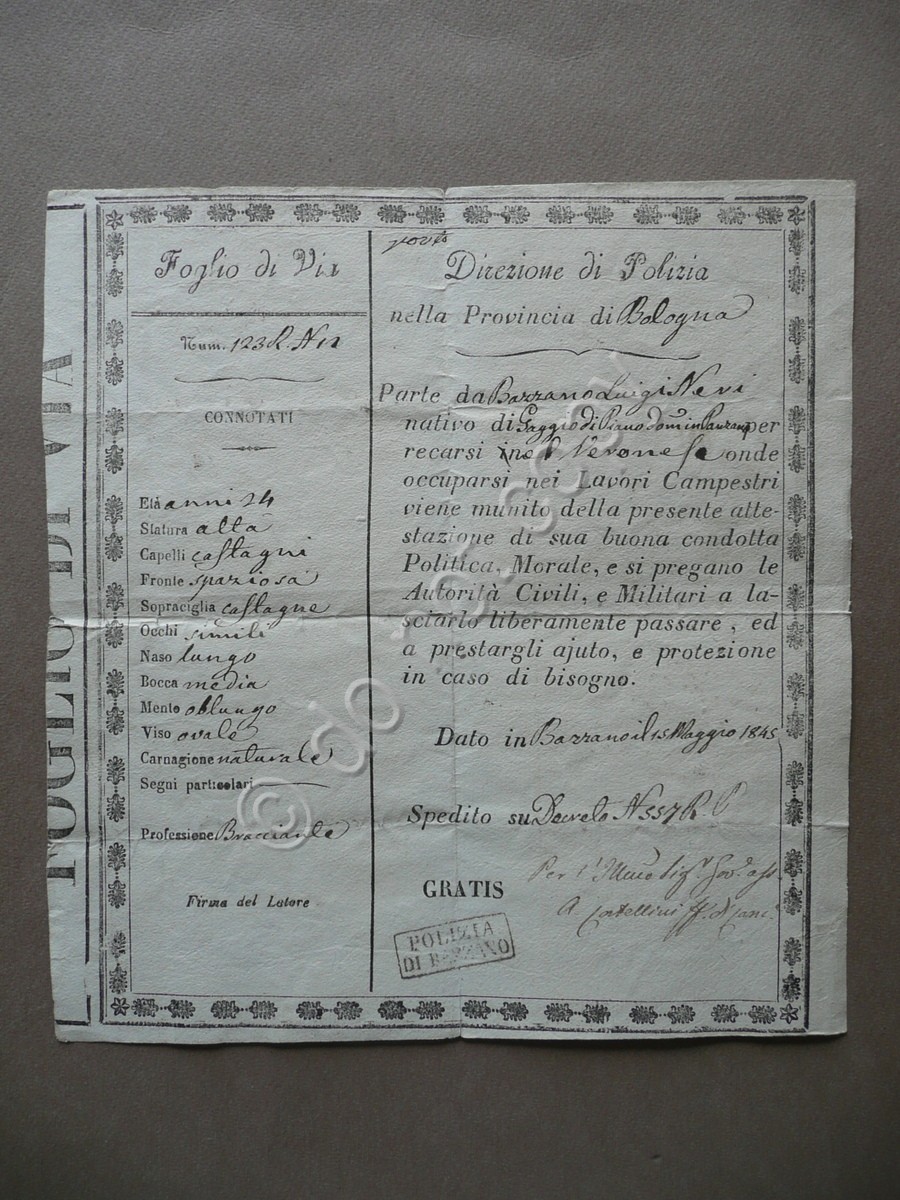 FOGLIO DI VIA
Foglio di Via
Num. 123 R. N 12
CONNOTATI
Età anni 24
Statura alta
Capelli castagni
Fronte spaziosa
Sopraciglia castagne
Occhi simili
Naso lungo
Bocca media
Mento oblungo
Viso ovale
Carnagione naturale
Segni particolari
Professione Bracciante
Firma del Latore
Direzione di Polizia
nella Provincia di Bologna
Parte da Bazzano Luigi Nevi
nativo di Gaggio di Piano dom in Panzano per
recarsi nel Veronese onde
occuparsi nei Lavori Campestri
viene munito della presente atte-
stazione di sua buona condotta
Politica, Morale, e si pregano le
Autorità Civili, e Militari a la-
sciarlo liberamente passare, ed
a prestargli ajuto, e protezione
in caso di bisogno.
Dato in Bazzano il 15 Maggio 1845
Spedito su Decreto N 557 R. P
Per l'
GRATIS
A
POLIZIA
DI BAZZANO
©